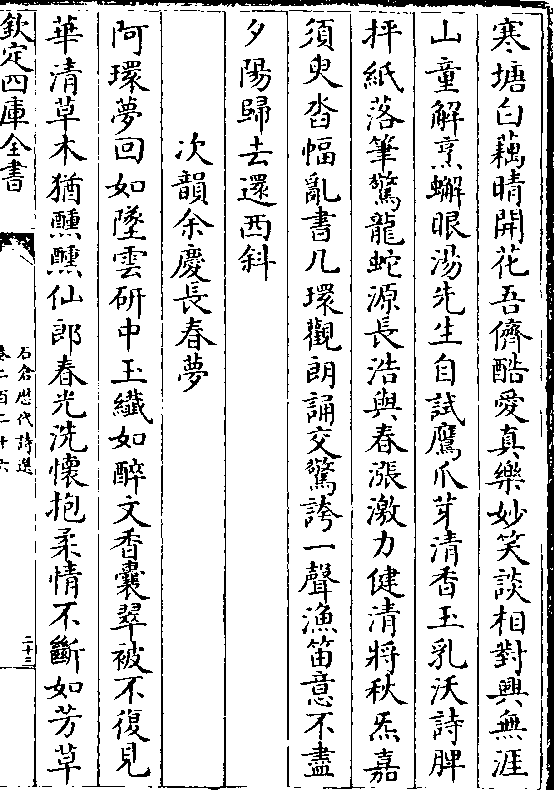 寒塘白藕晴開花吾儕酷愛真樂妙笑談相對興無涯
山童解烹蠏眼湯先生自試鷹爪芽清香玉乳沃詩脾
抨紙落筆驚龍蛇源長浩與春漲激力健清將秋炁嘉
須臾沓幅亂書几環觀朗誦交驚誇一聲漁笛意不盡
夕陽歸去還西斜
次韻余慶長春夢
阿環夢回如墜雲研中玉纖如醉文香囊翠被不復見
華清草木猶醺醺仙郎春光洗懷抱柔情不斷如芳草
欽定四庫全書
石倉歷代詩選
卷二百二十六
二十三